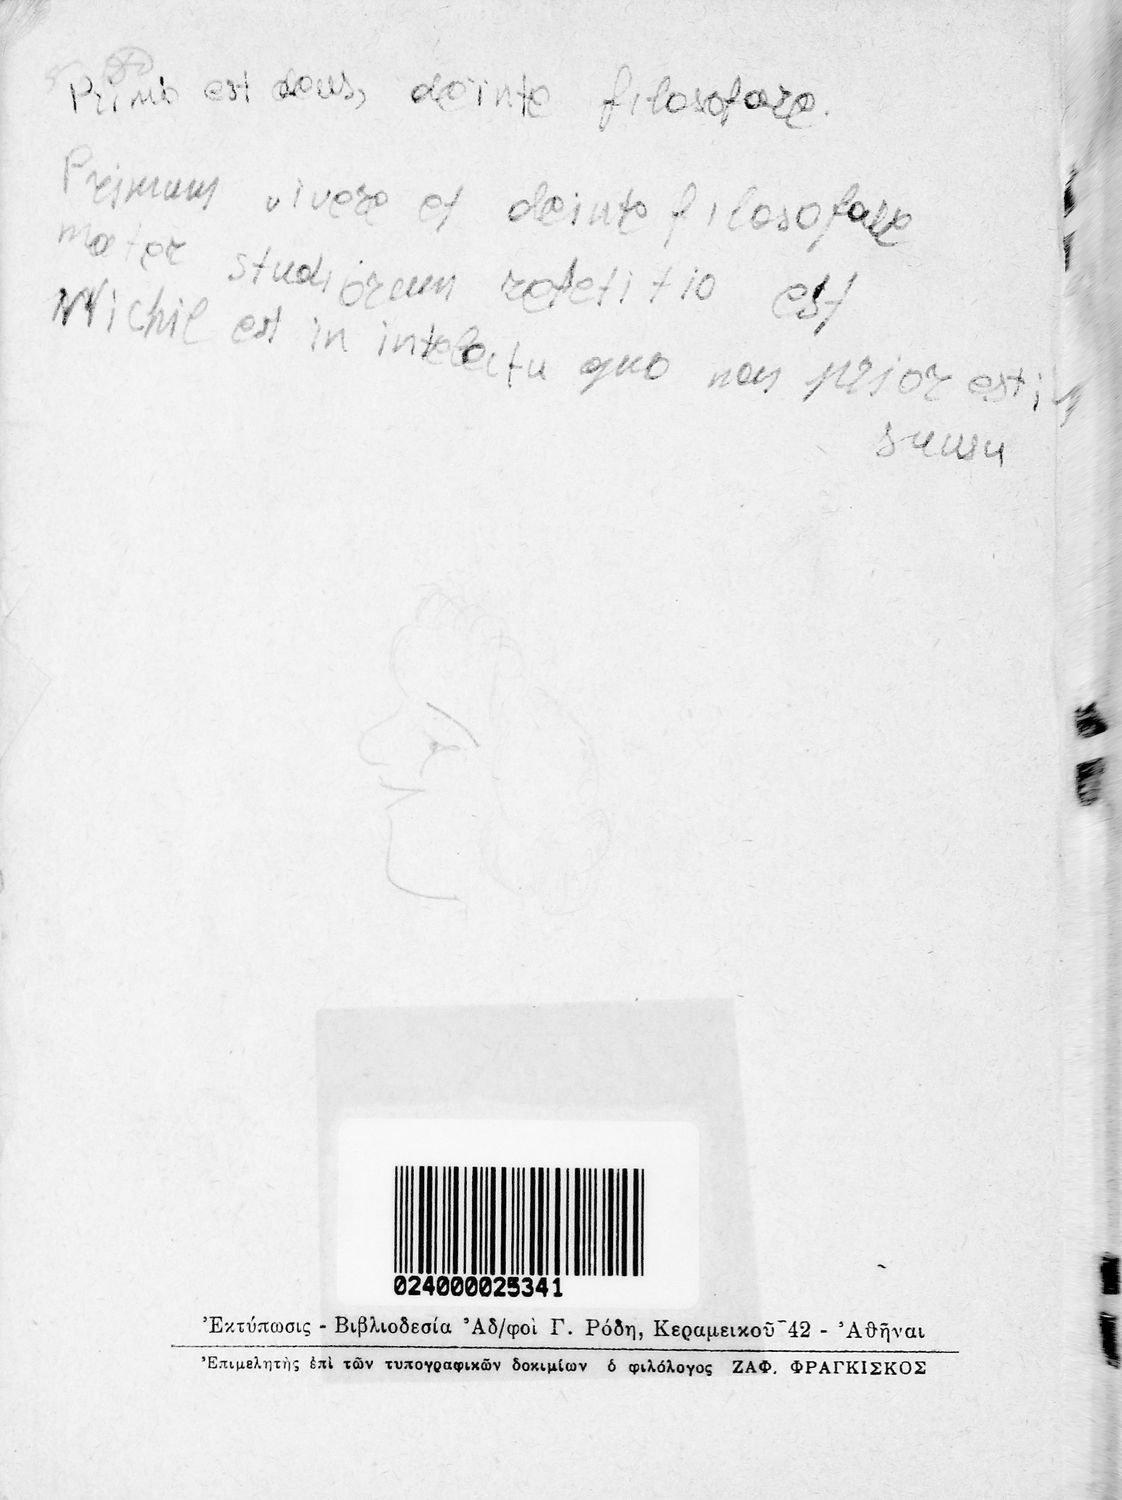 Primo est deus, deinte filosofare.
Primum vivere et deinte filosofare
mater studiorum repetitio est
Nichil est in intelectu quo non prior est in
sunsu
024000025341
Ἐκτύπωσις - Βιβλιοδεσία Ἀδ/φοὶ Γ. Ρόδη, Κεραμεικοῦ 42 - Ἀθῆναι
Ἐπιμελητὴς ἐπὶ τῶν τυπογραφικῶν δοκιμίων ὁ φιλόλογος ΖΑΦ. ΦΡΑΓΚΙΣΚΟΣ